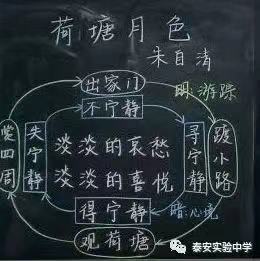 荷塘月色
朱自清
出家门
明:游踪
不宁静
受四周
失宁静
淡淡的哀愁
淡淡的喜悦
寻宁静
踱小路
得宁静
暗:心境
观荷塘
泰安实验中学